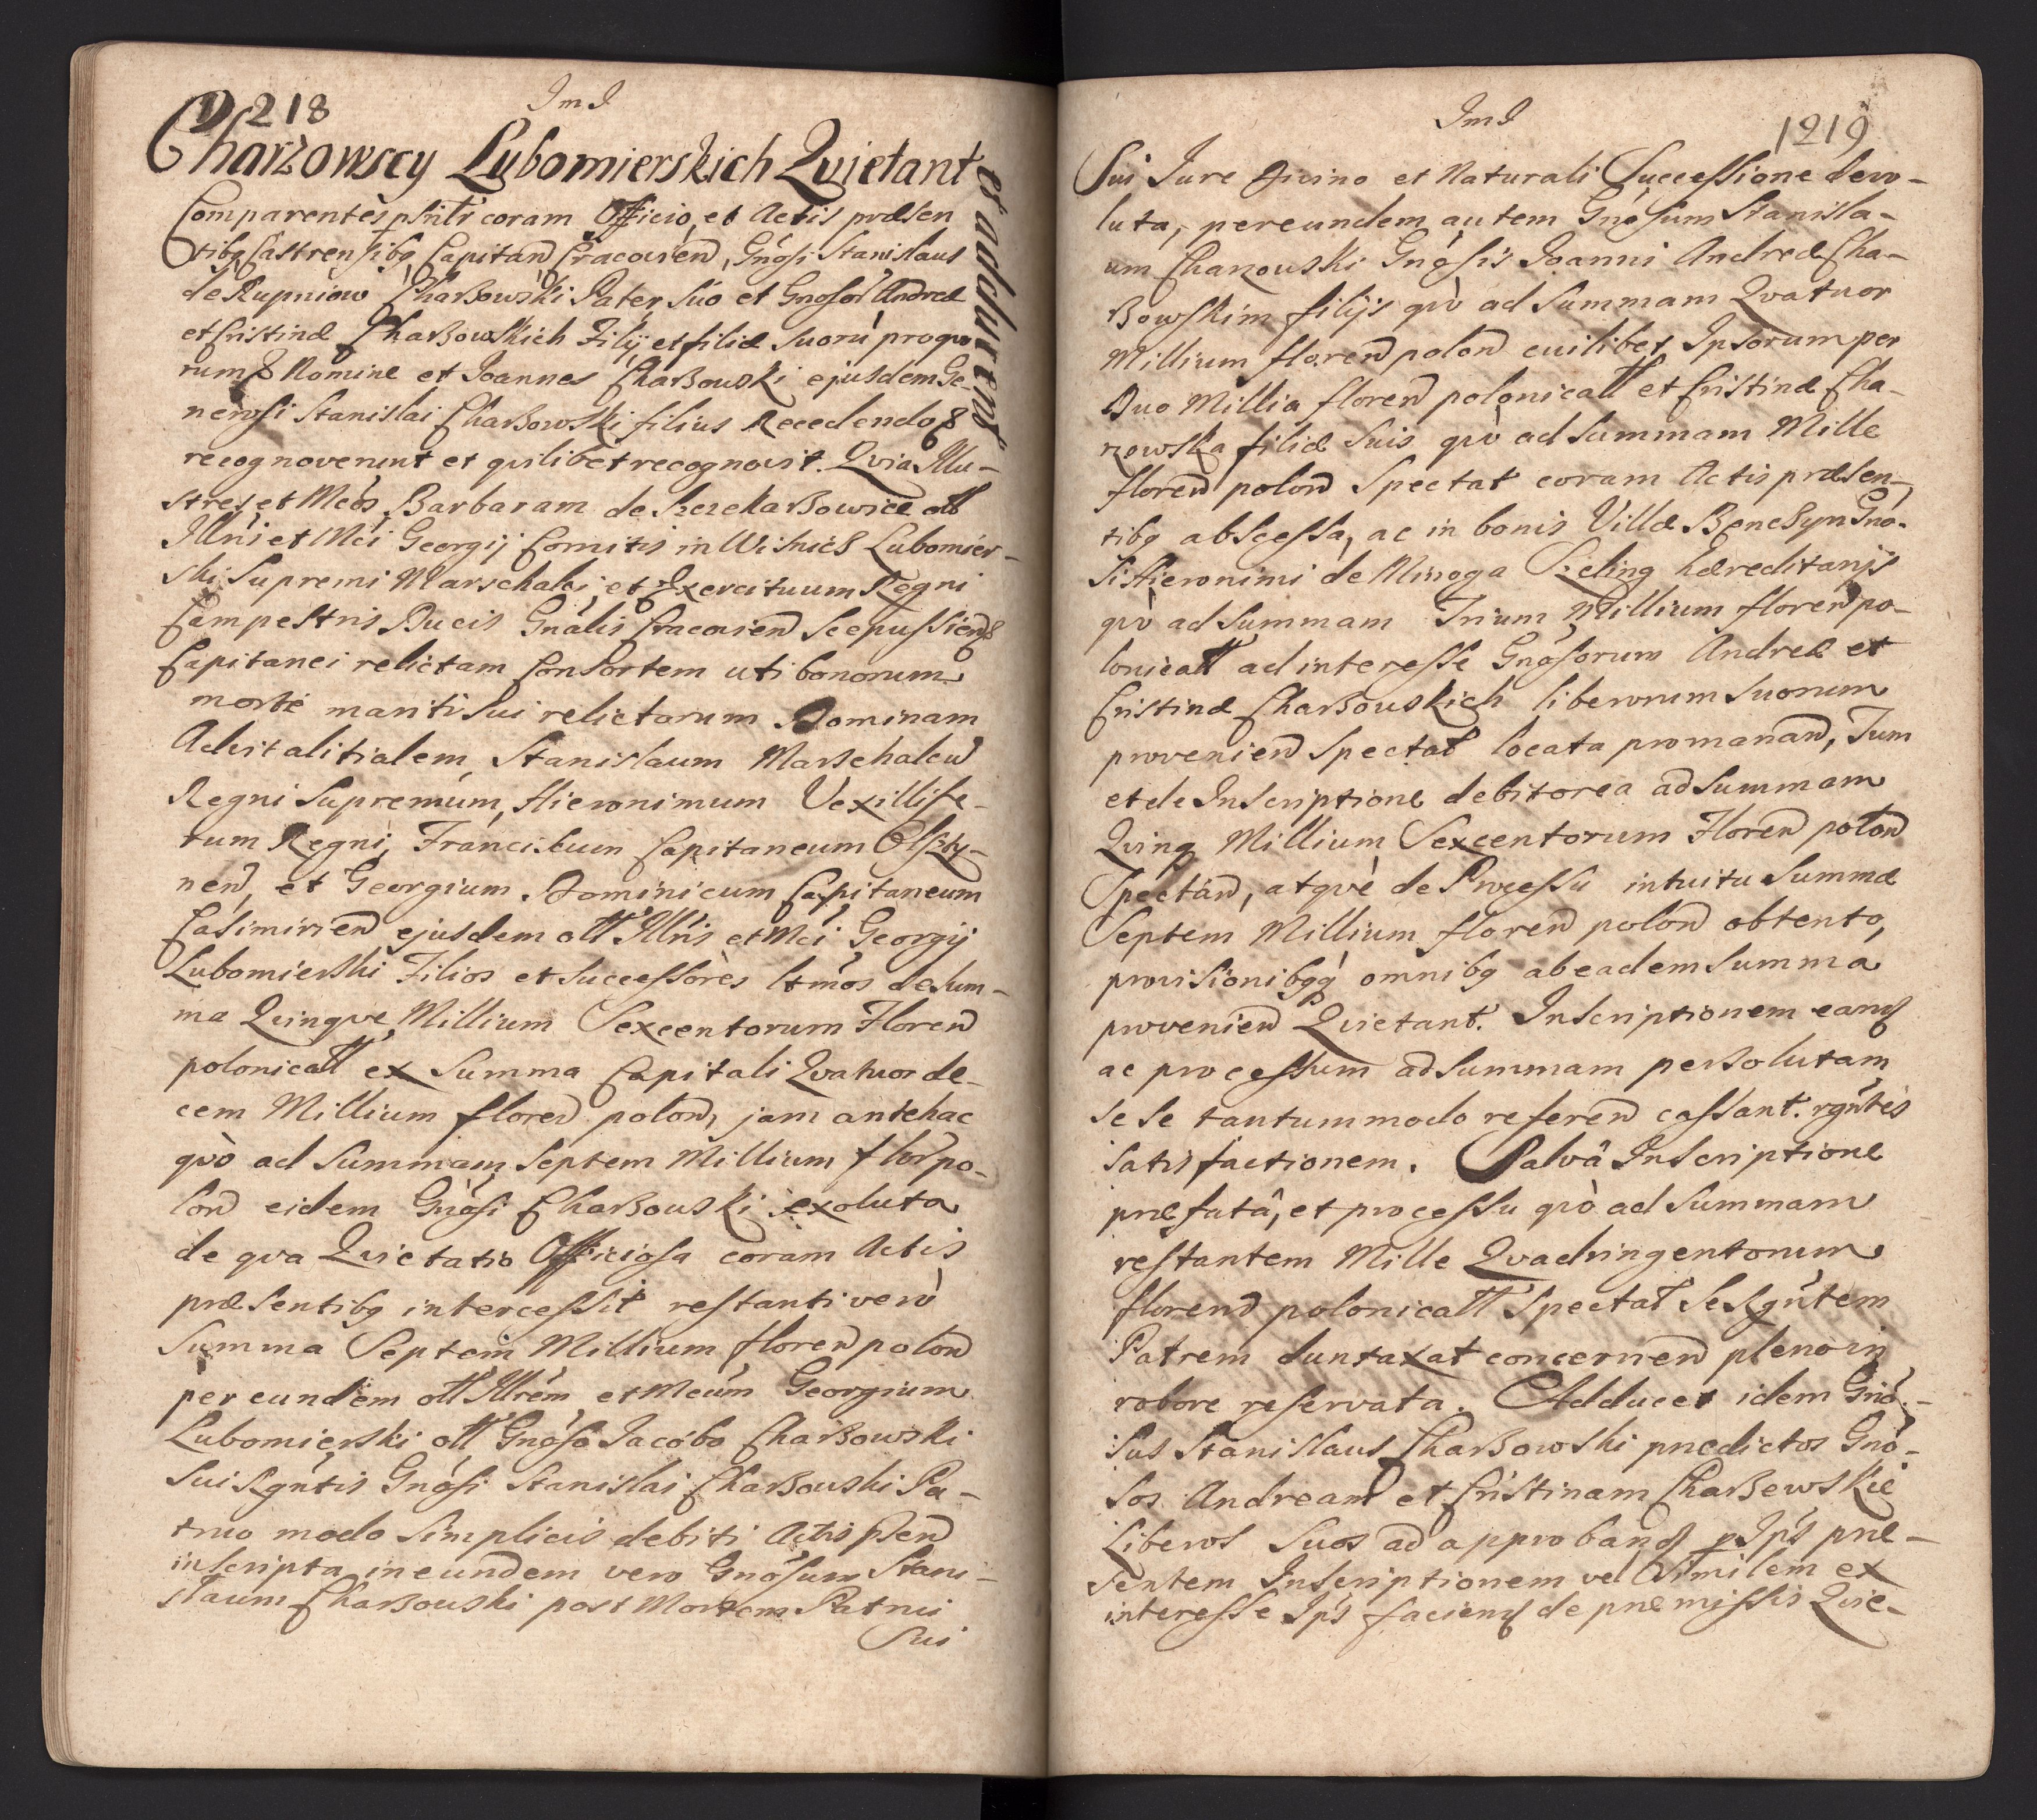 1218
ImI
Charzowscy Lubomierskich Qvietant
et adducent
Comparentes psnlr coram Officio, et Actis præsen
tibq Castrensibq Capitan̄ Cracovien̄, Gnosi Stanislaus
de Rupniow Charzowski Pater Suo et Gnosor Andreæ
et Cristinæ Charzowskich Filij et filiæ Suoru pro quo
rum Nomine et Joannes Charzowski ejusdem Ge
nerosi Stanislai Charzowski filius Recedendo
recognoverunt et qvilibet recognovit. Qvia Illu-
stres et Mcos Barbaram de
Illris et Mci Georgij Comitis in Wisnicz Lubomier-
ski Supremi Marschalci, et Exercituum Regni
Campestris Ducis Gnalis Cracovien̄ Scepussien̄
Capitanei relictam Consortem uti bonorum
morte mariti Sui relictorum Dominam
Advitalitialem, Stanislaum Marschalcu
Regni Supremum, Hieronimum Vexillife-
rum Regni, Franciscum Capitaneum Olszty-
nen̄, et Georgium Dominicum Capitaneum
Casimirien̄ ejusdem oll Illris et Mci Georgij
Lubomierski Filios et Successores ltmos de Sum-
ma Qvinqve Millium Sexcentorum Floren̄
polonicall ex Summa Capitali Qvatuorde-
cem Millium floren̄ polon̄, jam antehac
qvò ad Summam Septem Millium flor po-
lon̄ eidem Gnosi Charzowski exoluta
de qva Qvietatio Officiosa coram Actis
præsentibq intercessit restanti verò
Summa Septem Millium floren̄ polon̄
per eundem oll Illrem et Mcum Georgium
Lubomierski oll Gnoso Jacobo Charzowski
Sui Rgntis Gnosi Stanislai Charzowski Pa-
truo modo Simplicis debiti Actis psen̄
inscripta in eundem vero Gnosum Stani-
slaum Charzowski post Mortem Patrui
Sui
ImI
1219
Sui Jure Divino et Naturali Successione devo-
luta, per eundem autem Gnosum Stanisla-
um Charzowski Gnosis Joanni Andreæ Cha-
rzowskim filijs qvò ad Summam Qvatuor
Millium floren̄ polon̄ cuilibet Ipsorum per
Duo Millia floren̄ polonicall et Cristinæ Cha-
rzowska filiæ Suis qvò ad Summam Mille
floren̄ polon̄ Spectat coram Actis præsen-
tibq abscessa, ac in bonis Villæ Benesyn Gno-
si Hieronimi de Minoga Szeling hæreditarijs
qvò ad Summam Trium Millium floren̄ po-
lonicall ad interesse Gnosorum Andreæ et
Cristinæ Charzowskich liberorum Suorum
provenien̄ Spectat locata promanan̄, Tum
et de Inscriptione debitorea ad Summam
Qvinq Millium Sexcentorum Floren̄ polon̄
Spectan̄, atqvè de Processu intuitu Summæ
Septem Millium floren̄ polon̄ obtento,
provisionibqq omnibq ab eadem Summa
provenien̄ Qvietant. Inscriptionem eand
ac processum ad Summam persolutam
se se tantummodo referen̄ cassant. rgntes
satisfactionem. Salvâ Inscriptione
præfatâ, et processu qvò ad Summam
restantem Mille Qvadringentorum
floreno polonicall Spectat Se Rgntem
Patrem duntaxat concernen̄ pleno in
robore reservata. Adducet idem Gno-
sus Stanislaus Charzowski prædictos Gno-
sos Andream et Cristinam Charzewskie
Liberos Suos ad approband p Ips præ-
sentem Inscriptionem vel Similem ex
interesse Ips faciend de præmissis Qvie-